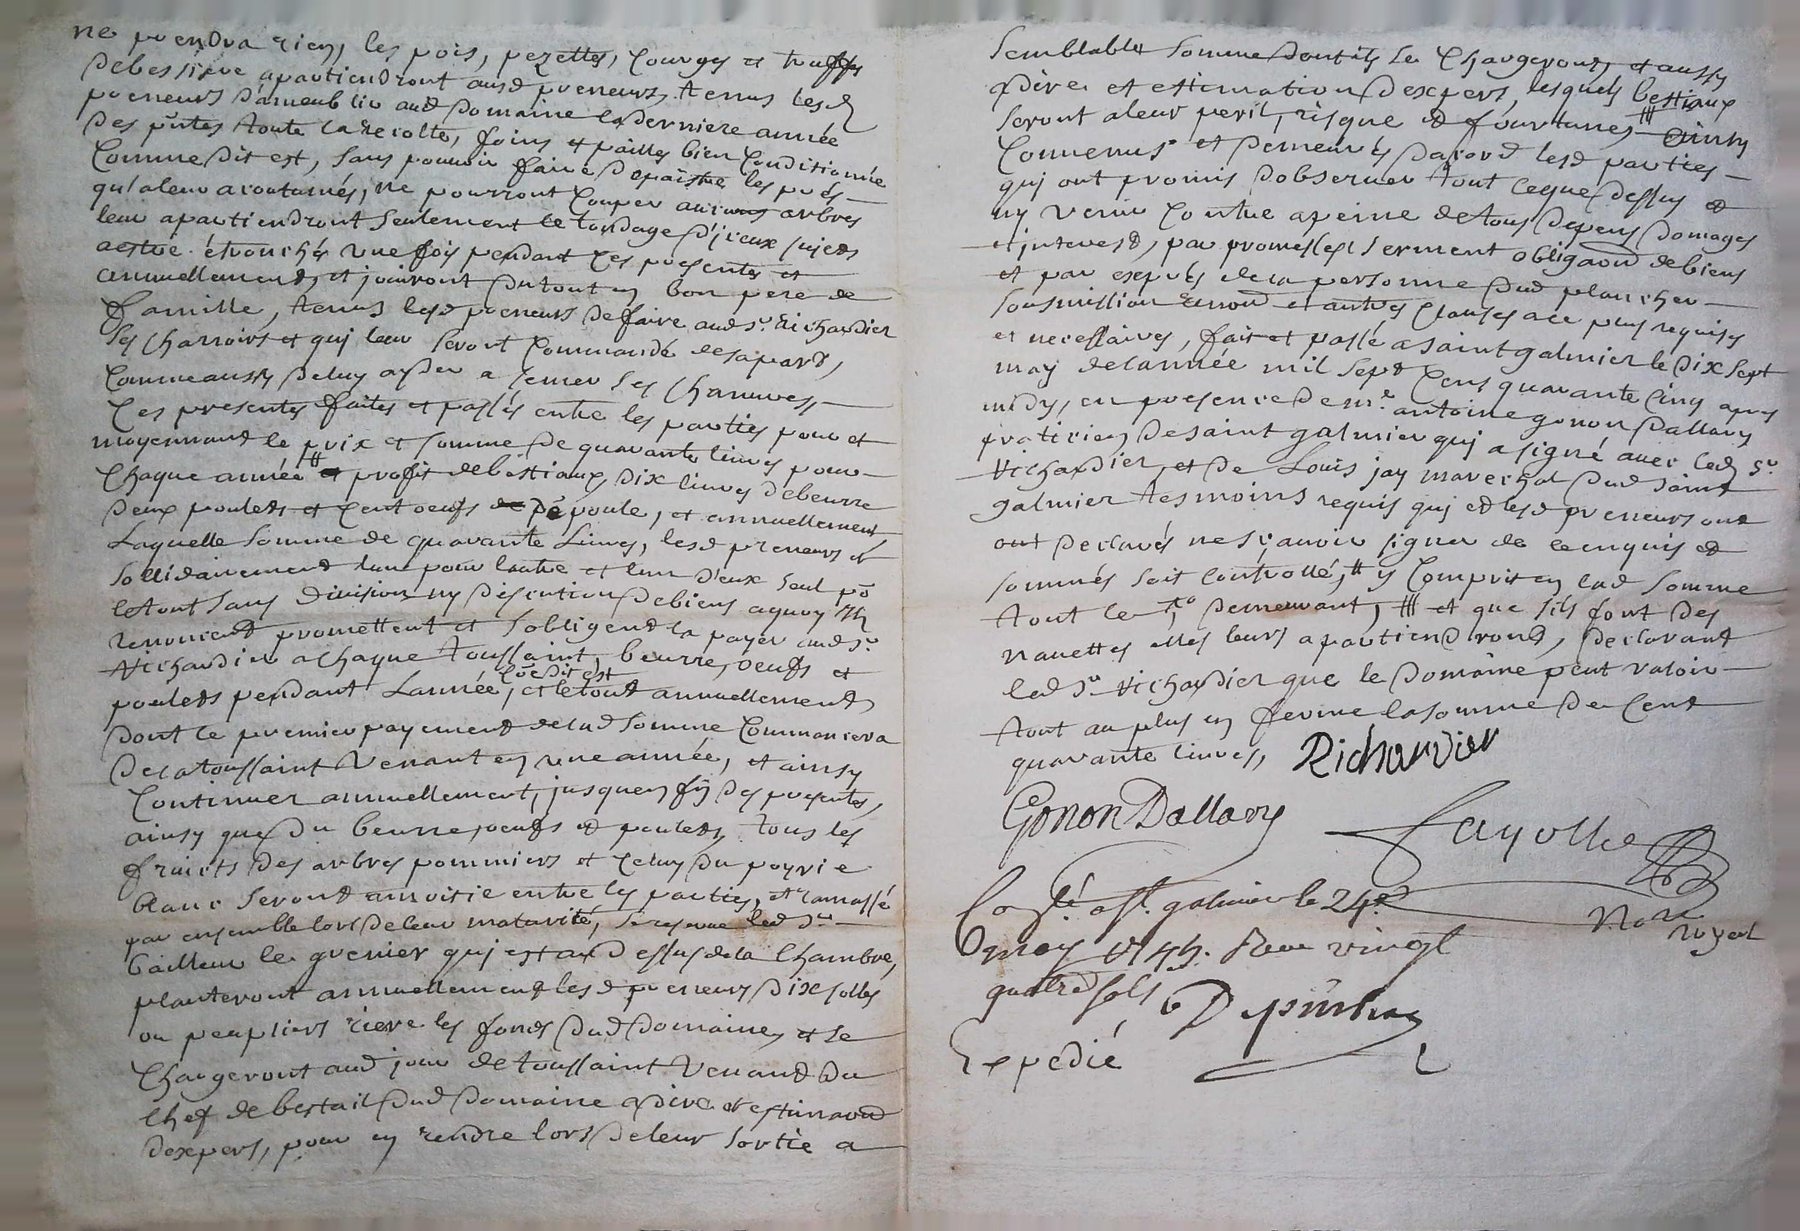 ne prendra rien, les pois, pezettes, courges et truffes
debessieve apartiendront ausd preneurs, tenus lesd
preneurs dameublir aud domaine la derniere année
des pntes toute la recolte, foins et pailles bien conditionnée
comme dit est, sans pouvoir faire depaistre les prés
qu'a leur acoutumés, ne pourront couper aucuns arbres
leur apartiendront seulement le tondage d'jceux sujets
aestre étronchés une fois pendant ces presentes et
annuellement, et joüiront du tout en bon pere de
famille, tenus lesd preneurs de faire aud sr. Richardier
ses charroirs et qui leur seront commandé de sa part,
comme aussy de luy ayder a semer ses chanures,
Ces presentes faites et passés entre les parties pour et
moyennant le prix et somme de quarante livres pour
chaque année # et profit de bestiaux, dix livres debeurre
deux poulets et cent oeufs de poule, et annuellement
Laquelle somme de quarante Livres, lesd preneurs
sollidairement lun pour lautre et lun d'eux seul po
letout sans division ny discution debiens aquoy jls
renoncent promettent et sobligent la payer aud sr.
Richardier a chaque toussaint, beurre, oeufs et
poulets pendant Lannée, coe dit est
et letout annuellement
dont le premier payement delad somme commancera
de la toussaint venant en une année, et ainsy
continuer annuellement, jusquen fin des presentes,
ainsy que du beurre, oeufs et poulets, tous les
fruicts des arbres pommiers et celuy du poyrie
blanc seront amoitie entre les parties, et ramassé
par ensemble lors de leur maturité, se reserve led sr.
bailleur le grenier qui est au dessus de la chambre,
planteront annuellement lesd preneurs dix solles
ou peupliers riere les fonds dud domaine, et se
chargeront aud jour de toussaint venant du
chef de bestail dud domaine adire et estimaon
dexpers, pour en rendre lors de leur sortie a
semblable somme dont ils se chargeront, et aussy
adire et estimation dexpers, lesquels bestiaux
seront a leur peril, risque et fourtunes ### ainsy
convenus et demeurés dacord lesd parties
qui ont promis dobserver tout ceque dessus et
ny venir contre apeine detous depens domages
et interest, par promesses serment obligaon debiens
et par exprés de la personne dud plancher
sousmission renon et autres clauses ace plus requises
et necessaires, fait et passé a saint galmier le dix sept
may delannée mil sept cens quarante cinq apres
midy, en presence de mr. antoine gonon Dallary
praticien de saint galmier qui a signé avec led sr.
Richardier, et de Louis jay marechal dud saint
galmier tesmoins requis qui et lesd preneurs ont
ont declarés ne sçavoir signer de ce enquis et
sommés soit controllé, # y compris en lad somme
tout le demeurant, ### et que sils font des
navettes elles leurs apartiendront, declarant
led sr Richardier que le domaine peut valoir
tout au plus en ferme la somme de cent
quarante livres, Richardier
Gonon Dallary
fayolle
Nore royal
Conlé. a St. galmier le 24e
may 1745. Reçu vingt
quatre sols
Expedié